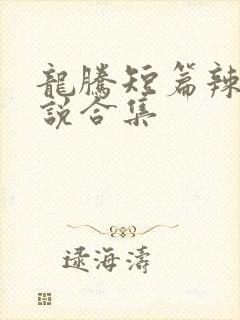 龍騰短篇辣
說合集
逯海濤